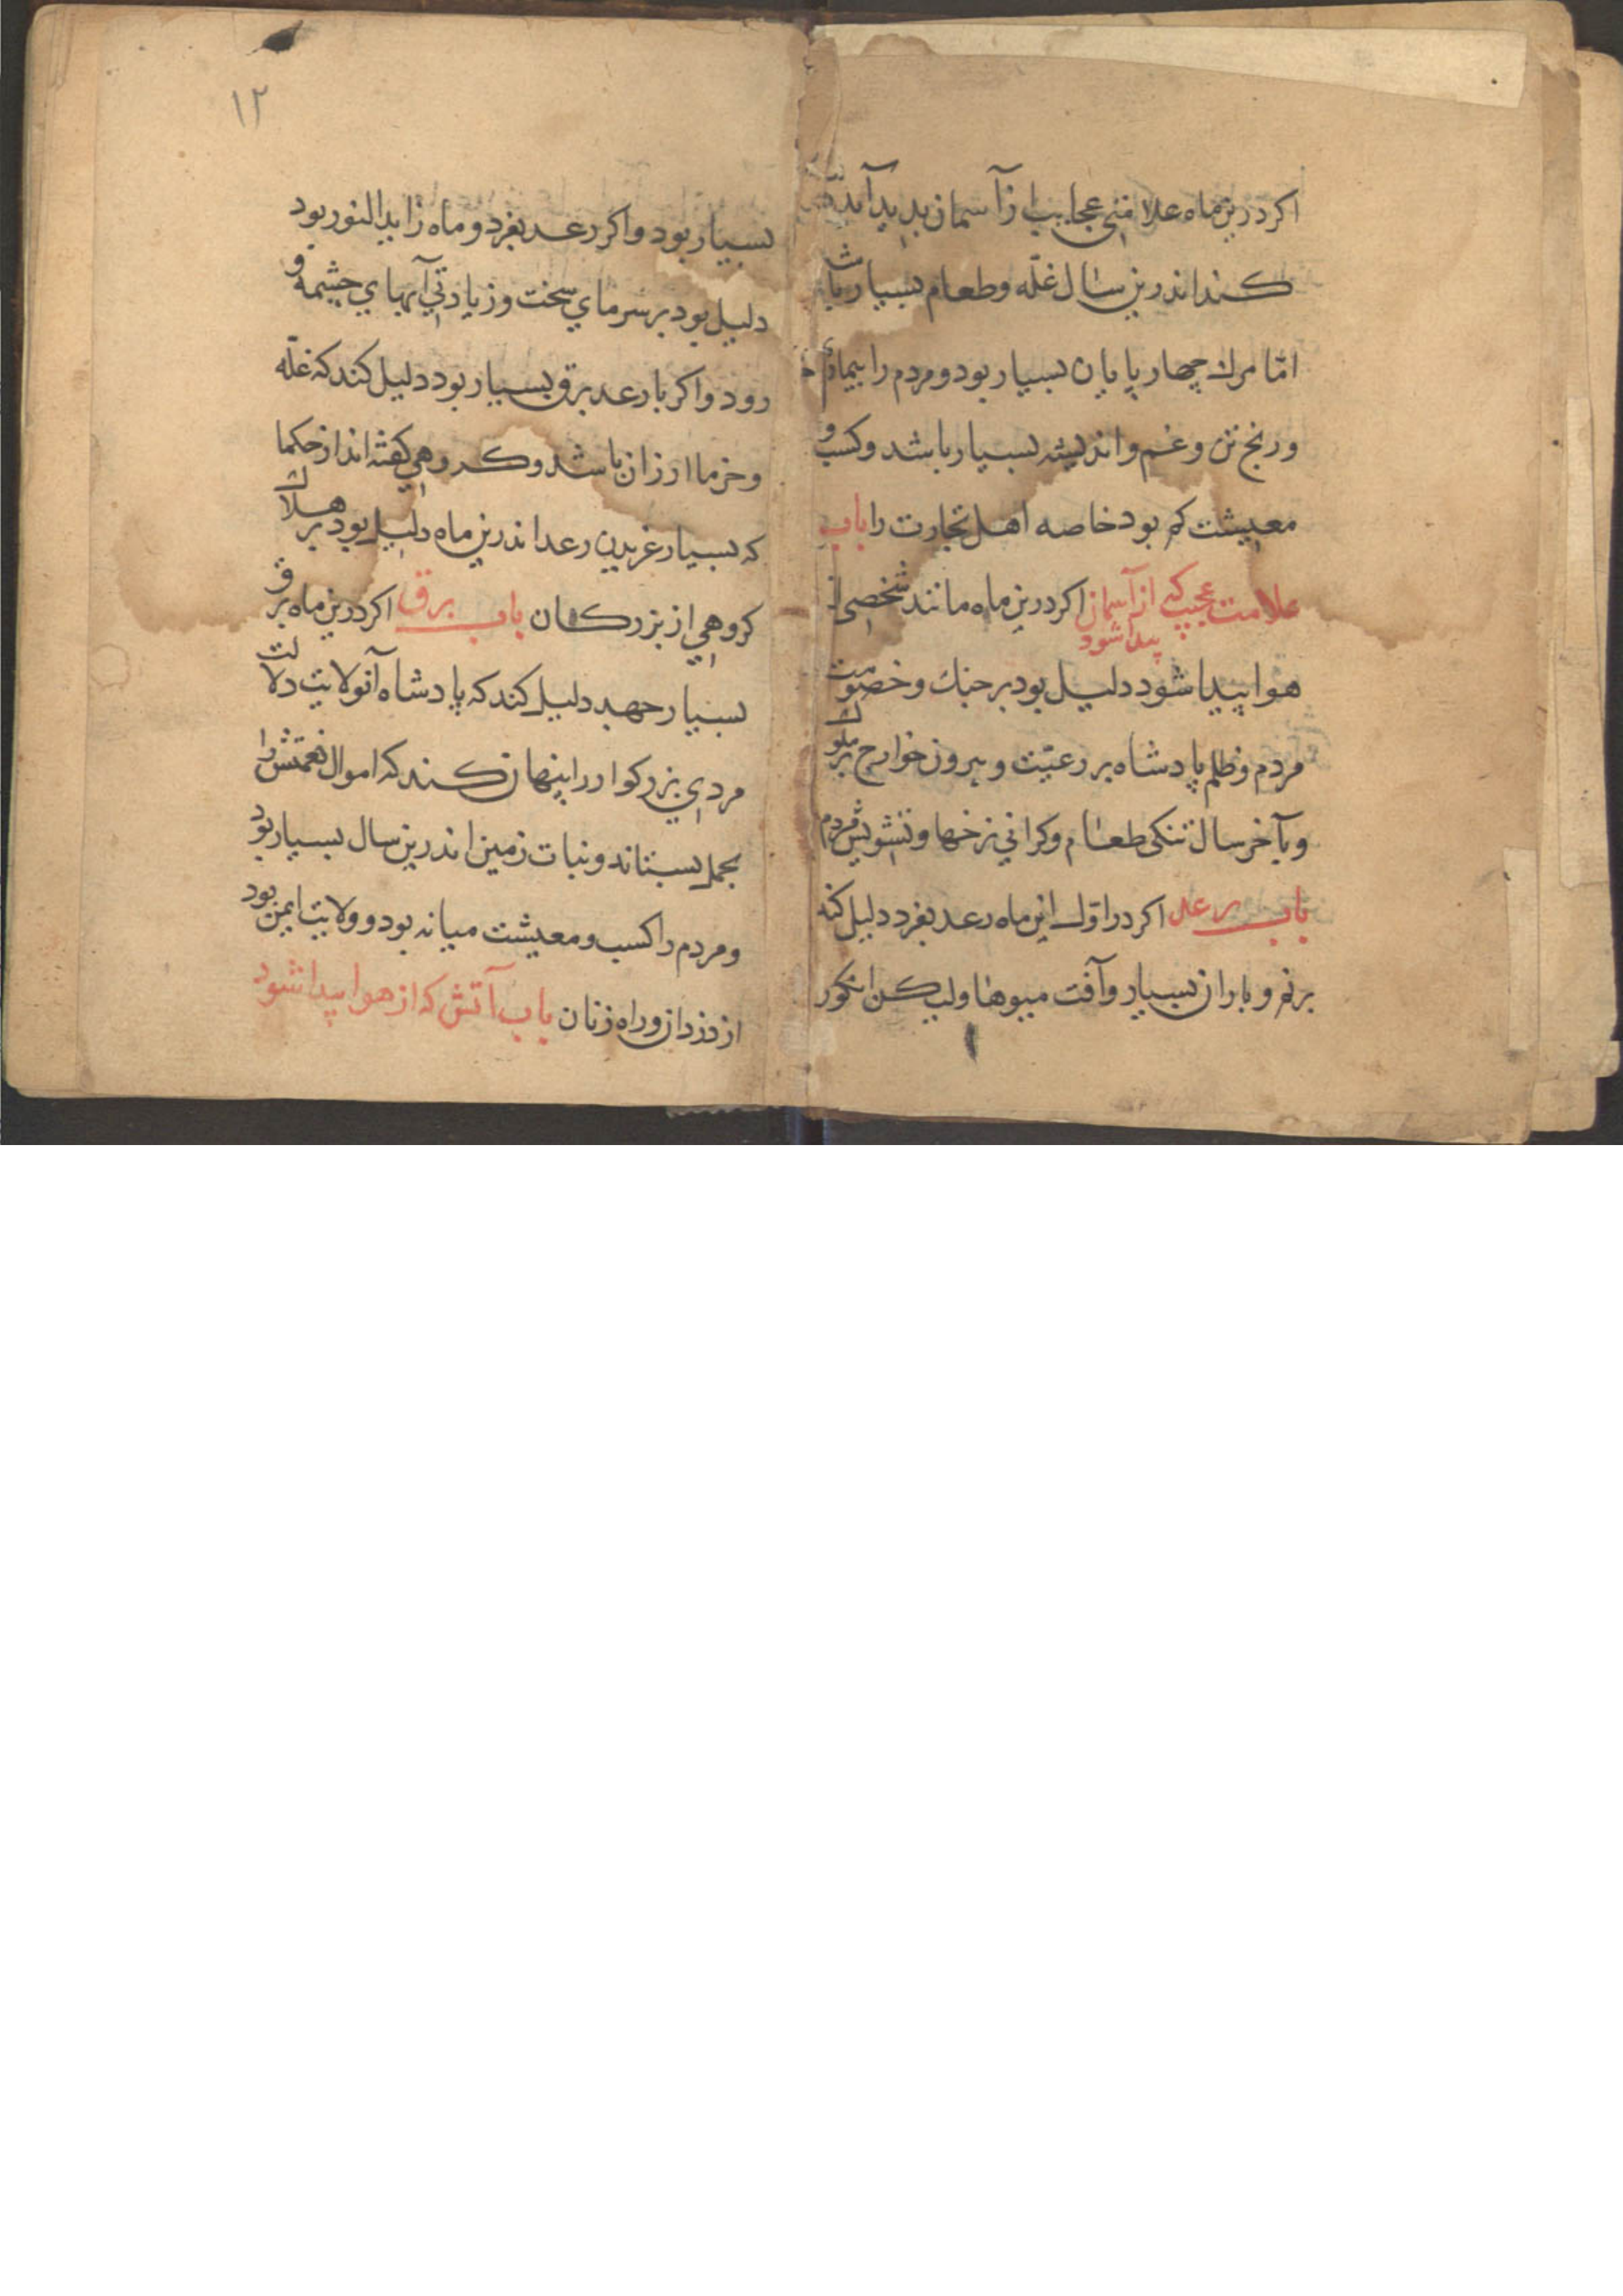 اکر درین ماه علامتی عجایب از آسمان پدید آید
کند اندرین سال غلّه و طعام بسیار باشد
امّا مرك چهار پایان بسیار بود و مردم را بیماری
و رنج تن و غم و اندیشه بسیار باشد و کسب و
معیشت کم بود خاصه اهل تجارت را باب
علامت عجیب که از آسمان پیدا شود اکر درین ماه مانند شخصی از
هوا پیدا شود دلیل بود بر جنك و خصومت
مردم و ظلم پادشاه بر رعیّت و بیرون خوارج بر ملوك
و بآخر سال تنکی طعام و کرانی نرخها و تشویش مردم
باب رعد اکر در اوّل این ماه رعد بغرد دلیل کند
برنم و باران بسیار و آفت میوها ولیکن انکور
۱۲
بسیار بود و اکر رعد بغرد و ماه زاید النور بود
دلیل بود بر سرمای سخت و زیادتی آبهای چشمه و
رود و اکر با رعد برق بسیار بود دلیل کند که غلّه
و خرما ارزان باشد و کروهی کفته اند از حکما
که بسیار غریدن رعد اندرین ماه دلیل بود بر هلاك
کروهی از بزرکان باب برق اکر درین ماه برق
بسیار جهد دلیل کند که پادشاه آنولایت دلالت
مردی بزرکوار را پنهان کند که اموال نعمتش را
بجمله بستاند و نبات زمین اندرین سال بسیار بود
و مردم را کسب و معیشت میانه بود و ولایت ایمن بود
از دزدان و راه زنان باب آتش که از هوا پیدا شود